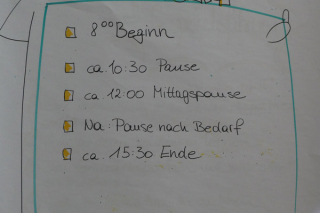 8⁰⁰ Beginn
ca. 10:30 Pause
ca. 12:00 Mittagspause
Na: Pause nach Bedarf
ca. 15:30 Ende